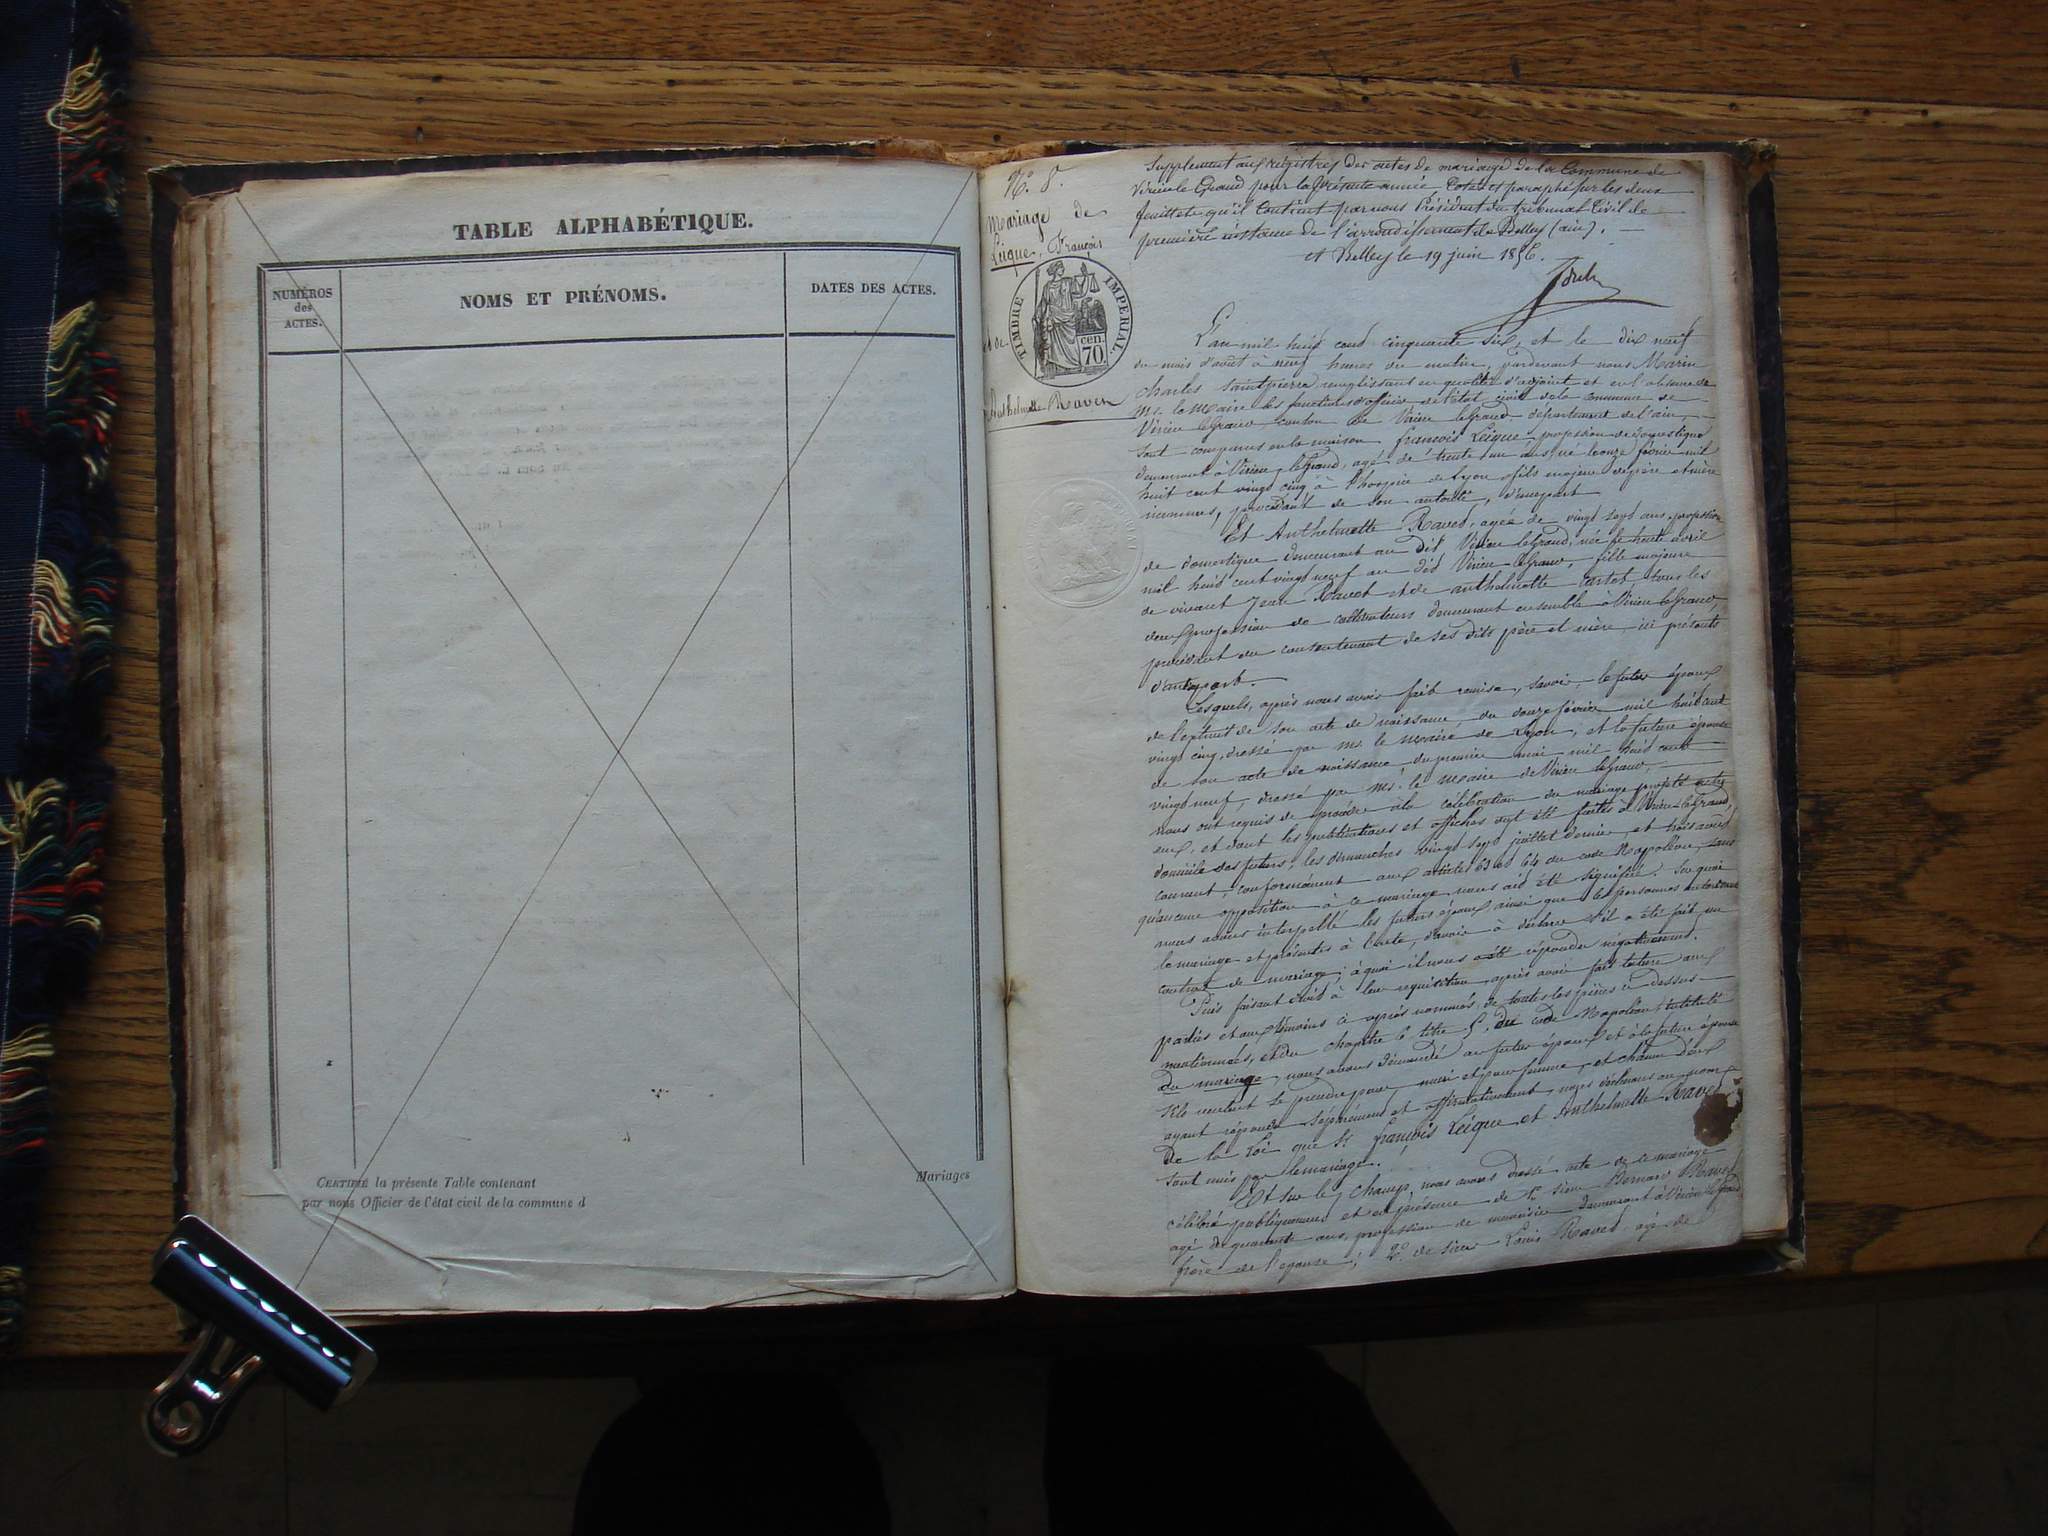 TABLE ALPHABÉTIQUE.
NUMÉROS
des
ACTES.
NOMS ET PRÉNOMS.
DATES DES ACTES.
CERTIFIÉ la présente Table contenant
Mariages
par nous Officier de l'état civil de la commune d
N.o 8.
Mariage de
Leique, François
TIMBRE IMPERIAL.
cen.
70
et de
Anthelmette Ravet
Supplement aux registres des actes de mariage de la Commune de
Virieu le Grand pour la présente année Coté et paraphé sur les deux
feuillets qu'il Contient par nous Président du tribunal Civil de
première instance de l'arrondissement de Belley (ain).
à Belley le 19 juin 1856.
L'an mil huit cent cinquante six, et le dix neuf
du mois d'août à neuf heures du matin, pardevant nous Marin
Charles Saint pierre, remplissant en qualité d'adjoint et en l'absence de
Mr. le Maire les fonctions d'officier de l'état civil de la commune de
Virieu le Grand, canton de Virieu le Grand, département de l'ain,
sont comparus en la maison françois Leique profession de domestique
demeurant à Virieu le Grand, agé de trente un ans, né le onze février mil
huit cent vingt cinq à l'hospice de Lyon fils majeur de père et mère
inconnus, procédant de son autorité, d'une part
Et Anthelmette Ravet, agée de vingt sept ans, profession
de domestique demeurant au dit Virieu le Grand, née le trente avril
mil huit cent vingt neuf au dit Virieu le Grand, fille majeure
de vivant Jean Ravet et de anthelmette Cartet, tous les
deux profession de cultivateurs demeurant ensemble à Virieu le Grand,
procédant du consentement de ses dits père et mère ici présents
d'autre part.
Lesquels, après nous avoir fait remise, savoir, le futur époux
de l'extrait de son acte de naissance, du douze février mil huit cent
vingt cinq, dressé par Mr. le Maire de Lyon, et la future épouse
de son acte de naissance du premier mai mil huit cent
vingt neuf, dressé par Mr. le Maire de Virieu le Grand,
nous ont requis de procéder à la célébration du mariage projeté entre
eux, et dont les publications et affiches ont été faites à Virieu le Grand,
domicile des futurs, les dimanches vingt sept juillet dernier et trois août
courant, conformément aux articles 63 et 64 du code Napoléon, sans
qu'aucune opposition à ce mariage nous ait été signifiée. Sur quoi
nous avons interpellé les futurs époux, ainsi que les personnes autorisant
le mariage et présentes à l'acte, d'avoir à déclarer s'il a été fait un
contrat de mariage; à quoi il nous a été répondu négativement.
Puis faisant droit à leur réquisition, après avoir fait lecture aux
parties et aux témoins ci après nommés, de toutes les pièces ci dessus
mentionnées, et du chapitre 6 titre 5, du code Napoléon, intitulé
du mariage, nous avons demandé au futur époux et à la future épouse
s'ils veulent se prendre pour mari et pour femme, et chacun d'eux
ayant répondu séparément et affirmativement, nous déclarons au nom
de la Loi que Sr. françois Leique et Anthelmette Ravet
sont unis par le mariage.
Et sur le champ, nous avons dressé acte de ce mariage
célébré publiquement et en présence de 1.o sieur Bernard Ravet
agé de quarante ans, profession de menuisier demeurant à Virieu le Grand
frère de l'épouse; 2.o de sieur Louis Ravet agé de